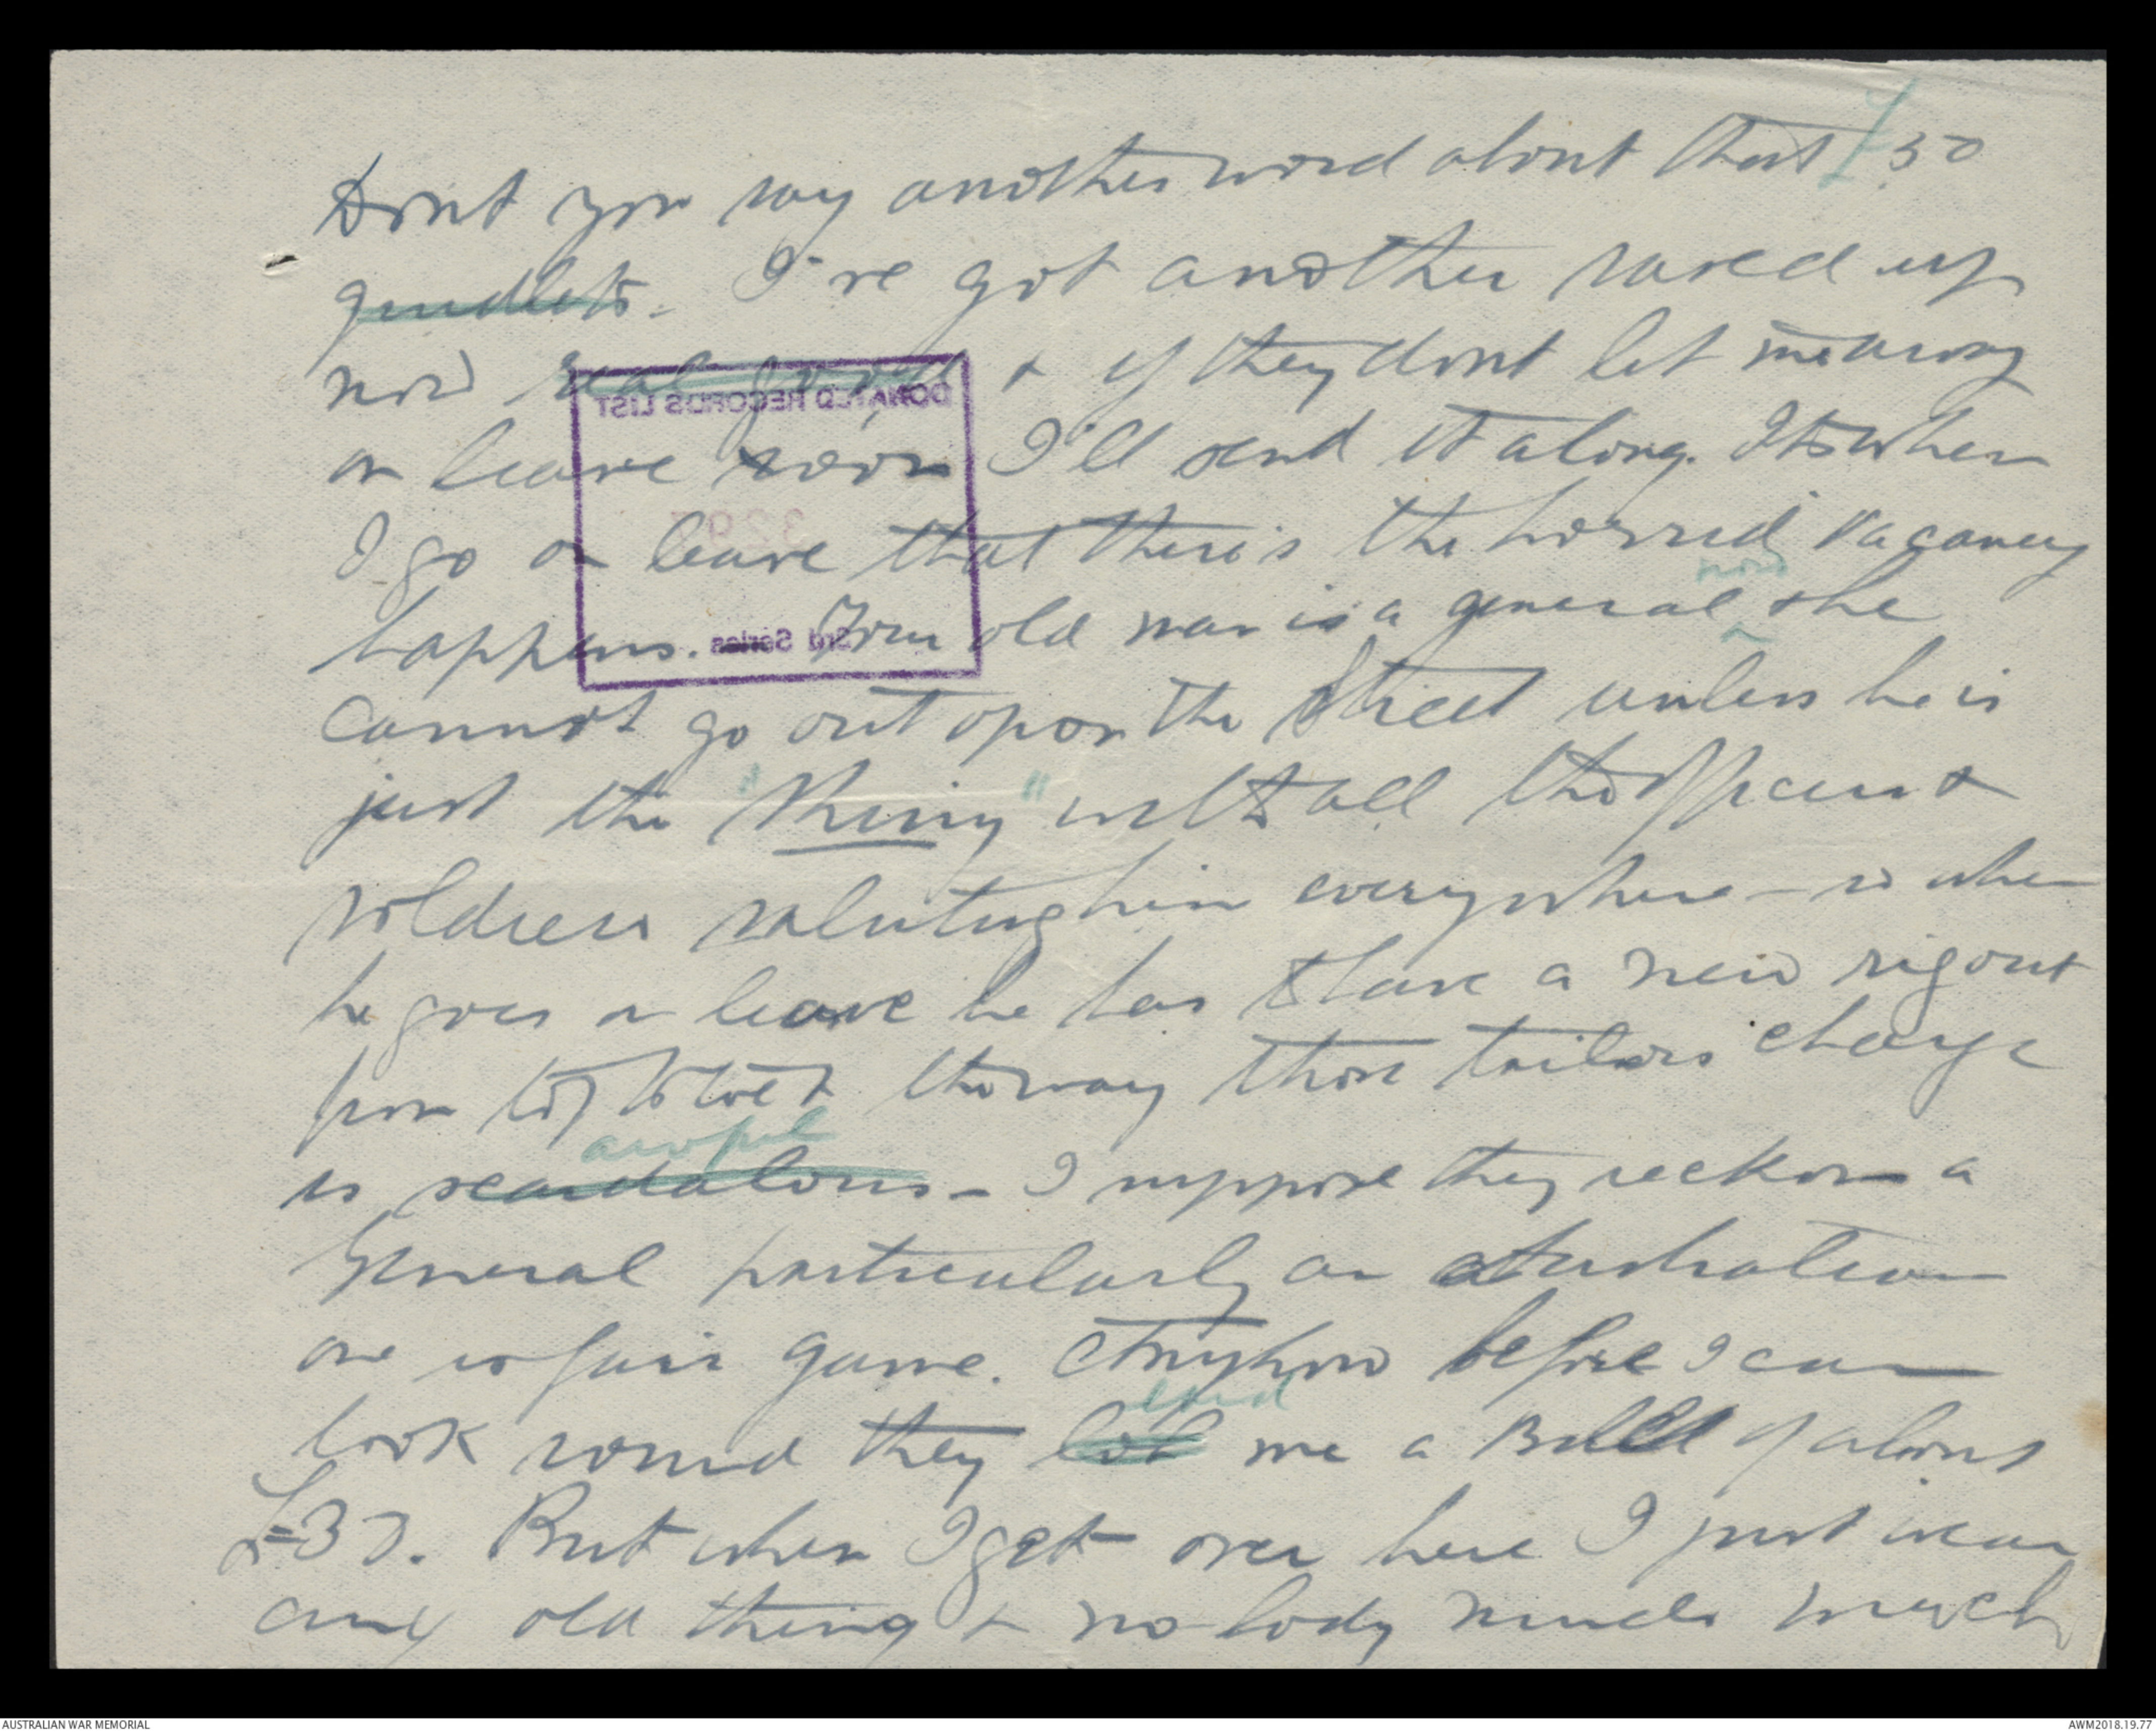 Dont you say another word about that £50
quidlets. I've got another saved up
now real good & if they dont let me away
on leave soon I'll send it along. Its when
I go on leave that there's the horrid vacancy
now
happens. Your old man is a general & he
cannot go out upon the street unless he is
just the "Thing" with all the officers &
soldiers saluting him everywhere – so when
he goes on leave he has to have a new rigout
from top to toe & the way those tailors charge
awful
is scandalous – I suppose they reckon a
General particularly an Australian
one is fair game. Anyhow before I can
land
look round they lob me a Bill of about
£30. But when I get over here I just wear
any old thing & nobody minds much
DONATED RECORDS LIST
329
3rd Series
AUSTRALIAN WAR MEMORIAL
AWM2018.19.77